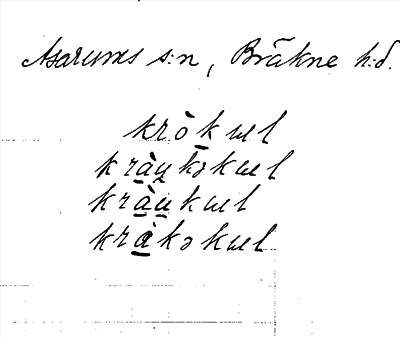 Asarums s:n, Bräkne h:d.
krò̱kɯl
krà̱u̱kəkɯl
krà̱u̱kɯl
krà̱kəkɯl